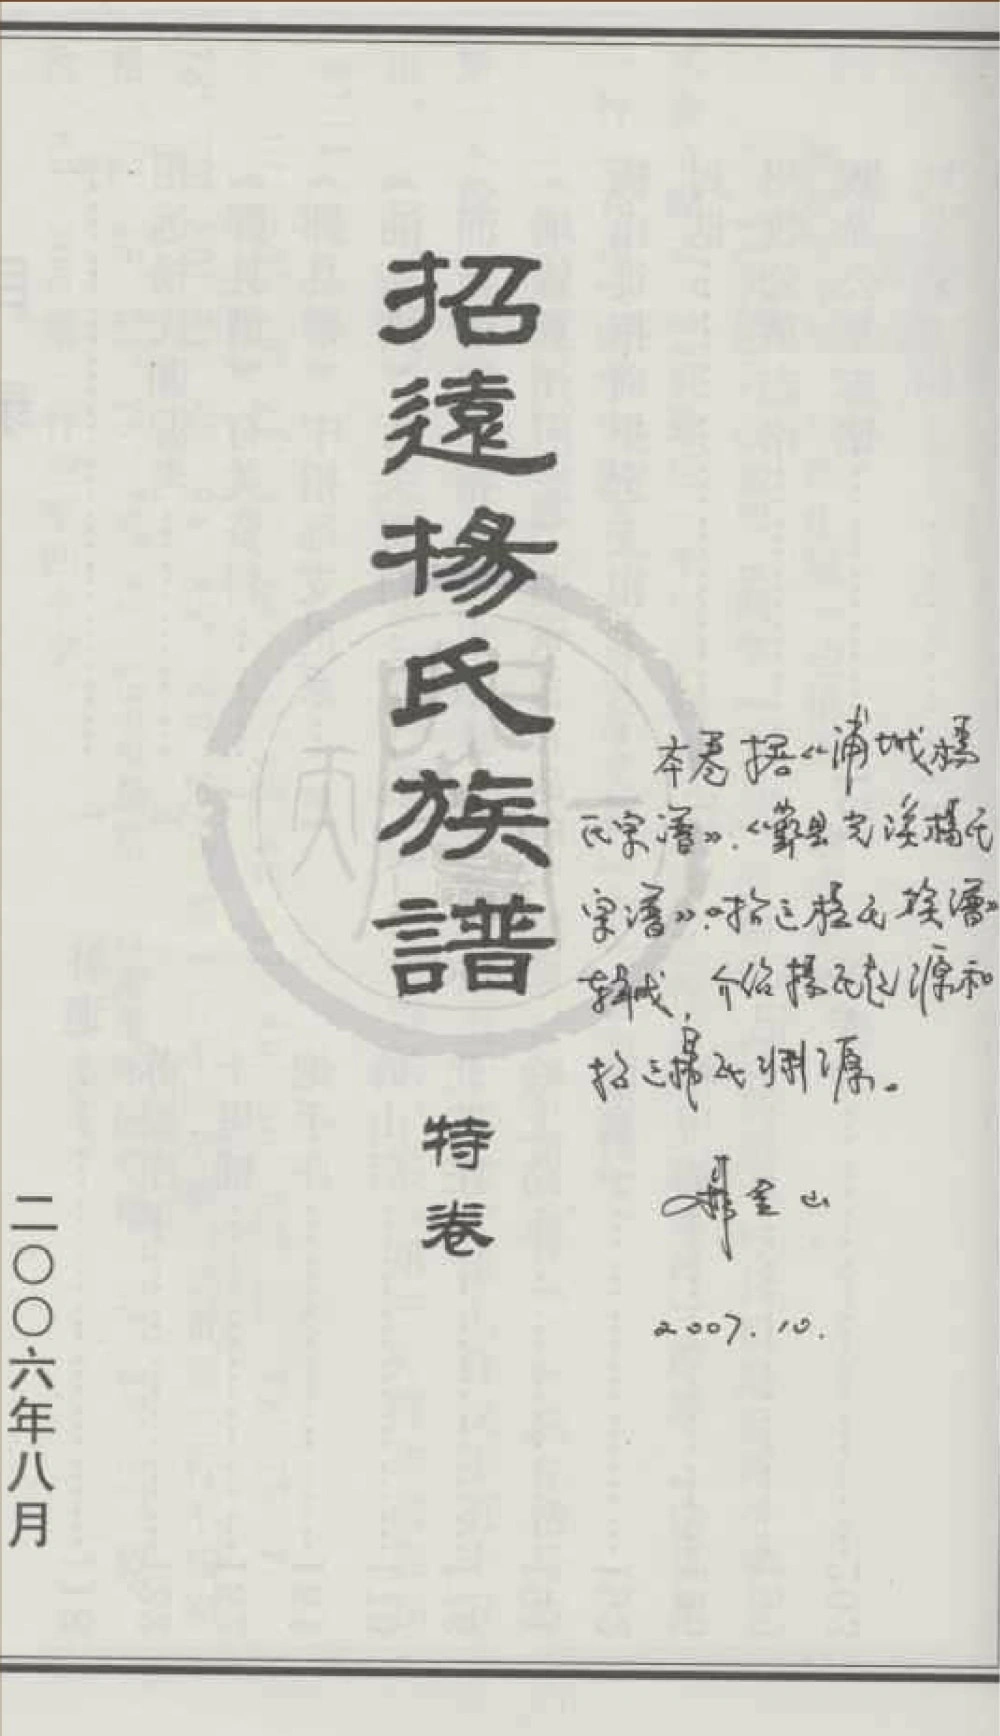 招遠楊氏族譜
特卷
二〇〇六年八月
本卷据《浦城楊
氏宗谱》、《鄞县完溪楊氏
宗谱》、《招远楊氏族谱》
辑成，介绍楊氏起源和
招远楊氏渊源。
山
2007.10.